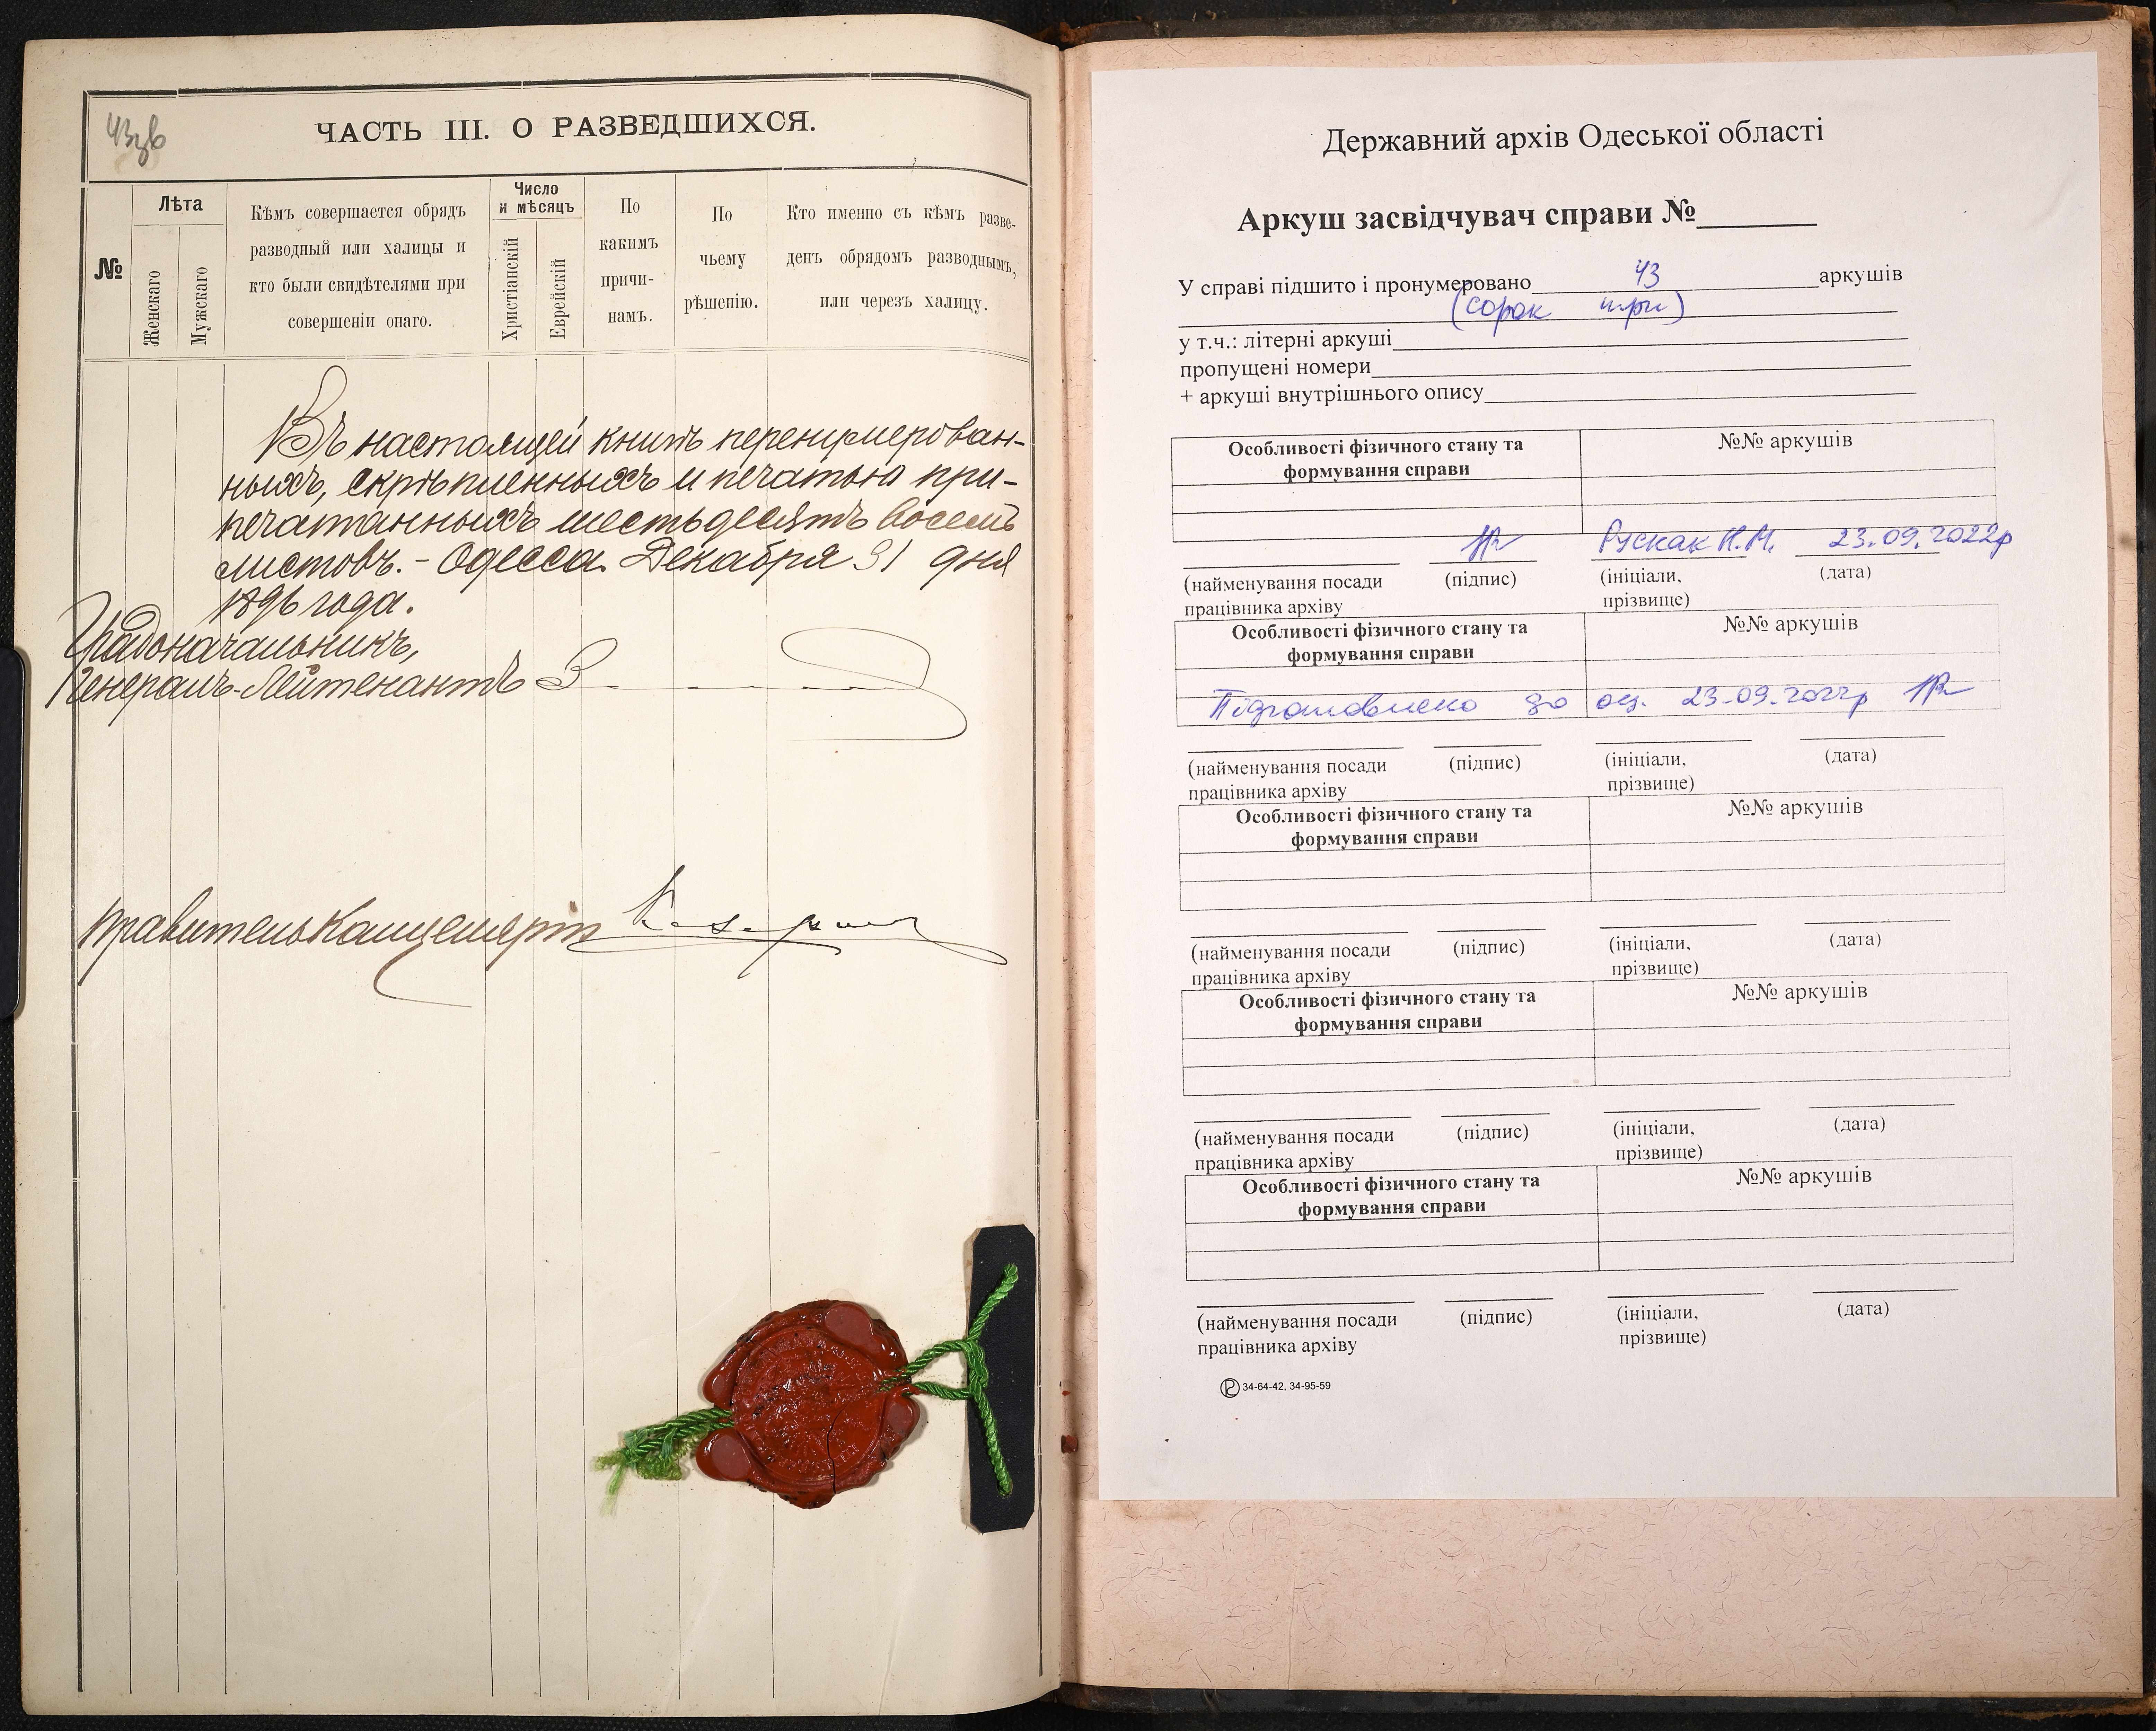 43зв
ЧАСТЬ III. О РАЗВЕДШИХСЯ.
№
Лѣта
Женскаго
Мужскаго
Кѣмъ совершается обрядъ
разводный или халицы и
кто были свидѣтелями при
совершеніи онаго.
Число
и мѣсяцъ
Христіанскій
Еврейскій
По
какимъ
причи-
намъ.
По
чьему
рѣшенію.
Кто именно съ кѣмъ разве-
денъ обрядомъ разводнымъ,
или черезъ халицу.
Въ настоящей книгѣ перенумерован-
ныхъ, скрѣпленныхъ и печатью при-
печатанныхъ шестьдесятъ восемь
листовъ. - Одесса. Декабря 31 дня
1896 года.
Градоначальникъ,
Генералъ-Лейтенантъ
Правитель Канцеляріи
Державний архів Одеської області
Аркуш засвідчувач справи №
У справі підшито і пронумеровано 43 аркушів
(сорок три)
у т.ч.: літерні аркуші
пропущені номери
+ аркуші внутрішнього опису
Особливості фізичного стану та
формування справи
№№ аркушів
Рускак Н.М. 23.09.2022р
(найменування посади
працівника архіву
(підпис)
(ініціали,
прізвище)
(дата)
Особливості фізичного стану та
формування справи
№№ аркушів
Підготовлено до оц. 23.09.2022р
(найменування посади
працівника архіву
(підпис)
(ініціали,
прізвище)
(дата)
Особливості фізичного стану та
формування справи
№№ аркушів
(найменування посади
працівника архіву
(підпис)
(ініціали,
прізвище)
(дата)
Особливості фізичного стану та
формування справи
№№ аркушів
(найменування посади
працівника архіву
(підпис)
(ініціали,
прізвище)
(дата)
Особливості фізичного стану та
формування справи
№№ аркушів
(найменування посади
працівника архіву
(підпис)
(ініціали,
прізвище)
(дата)
34-64-42, 34-95-59